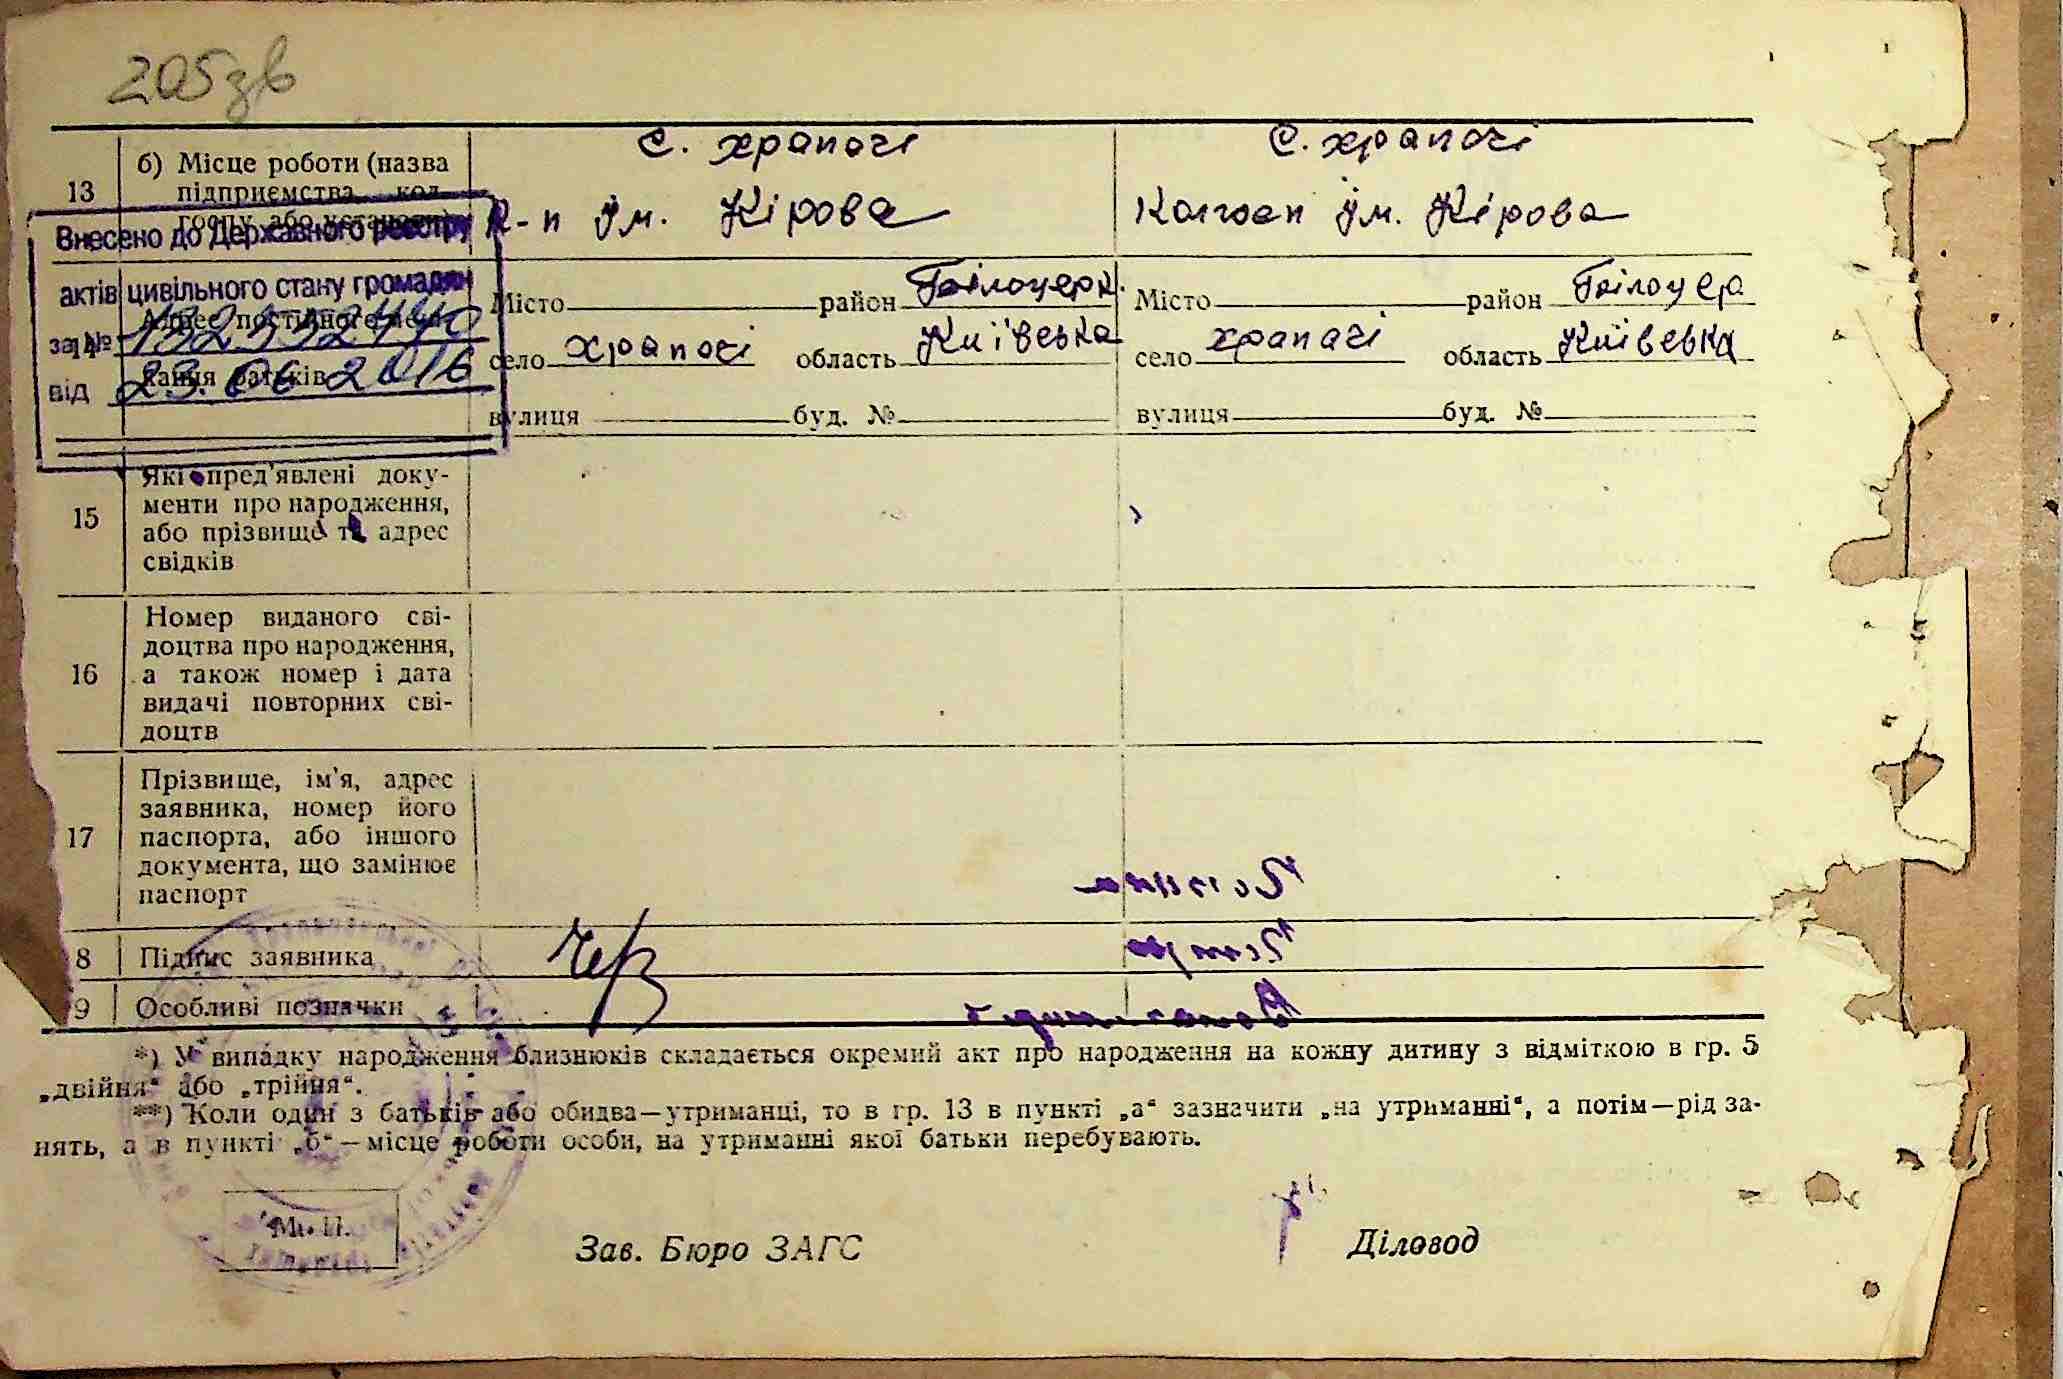 205зв
с. храпачі
с. храпачі
13
б) Місце роботи (назва
підприємства, кол-
госпу або установи)
к-п ім. Кірова
Колгосп ім. Кірова
Внесено до Державного реєстру
актів цивільного стану громадян
за №
від 23.06.2016
Місто район Білоцерк.
Місто район Білоцер
село храпачі область Київська
село храпачі область Київська
вулиця буд. №
вулиця буд. №
15
Які пред'явлені доку-
менти про народження,
або прізвище та адрес
свідків
16
Номер виданого сві-
доцтва про народження,
а також номер і дата
видачі повторних сві-
доцтв
17
Прізвище, ім'я, адрес
заявника, номер його
паспорта, або іншого
документа, що замінює
паспорт
8 Підпис заявника
9 Особливі позначки
*) У випадку народження близнюків складається окремий акт про народження на кожну дитину з відміткою в гр. 5
„двійня“ або „трійня“.
**) Коли один з батьків або обидва—утриманці, то в гр. 13 в пункті „а“ зазначити „на утриманні“, а потім—рід за-
нять, а в пункті „б“—місце роботи особи, на утриманні якої батьки перебувають.
М. П.
Зав. Бюро ЗАГС
Діловод